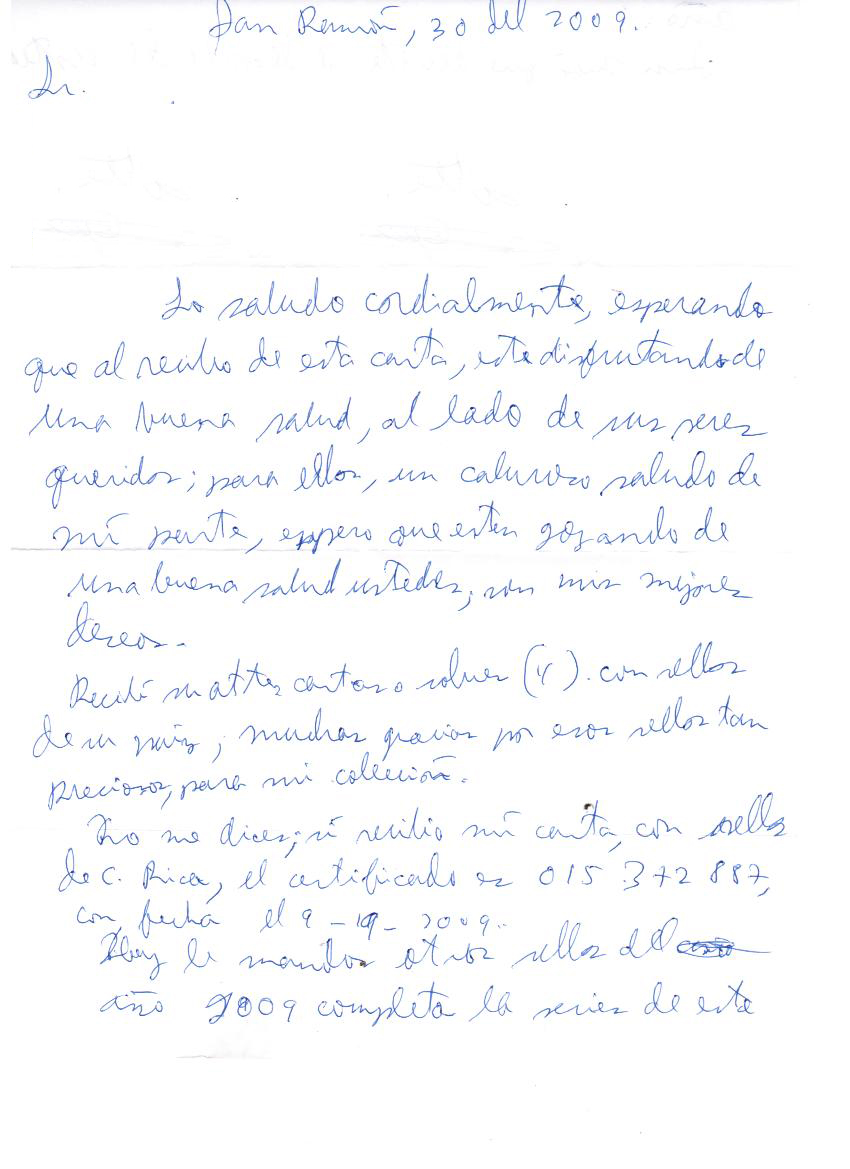 San Ramón, 30 del 2009.
Sr.
Lo saludo cordialmente, esperando
que al recibo de esta carta, este disfrutando de
una buena salud, al lado de sus seres
queridos; para ellos, un caluroso saludo de
mí parte, esppero que esten gozando de
una buena salud ustedes, son mis mejores
deseos.-
Recibí su attes carta o sobres (4). con sellos
de su país, muchas gracias por esos sellos tan
preciosos, para mi collección.
No me dices, sí recibio mí carta, con sellos
de C. Rica, el certificado es 015 372 887,
con fecha el 9 - - 2009.
Hoy le mandos otros sellos del
año 2009 completa la series de este